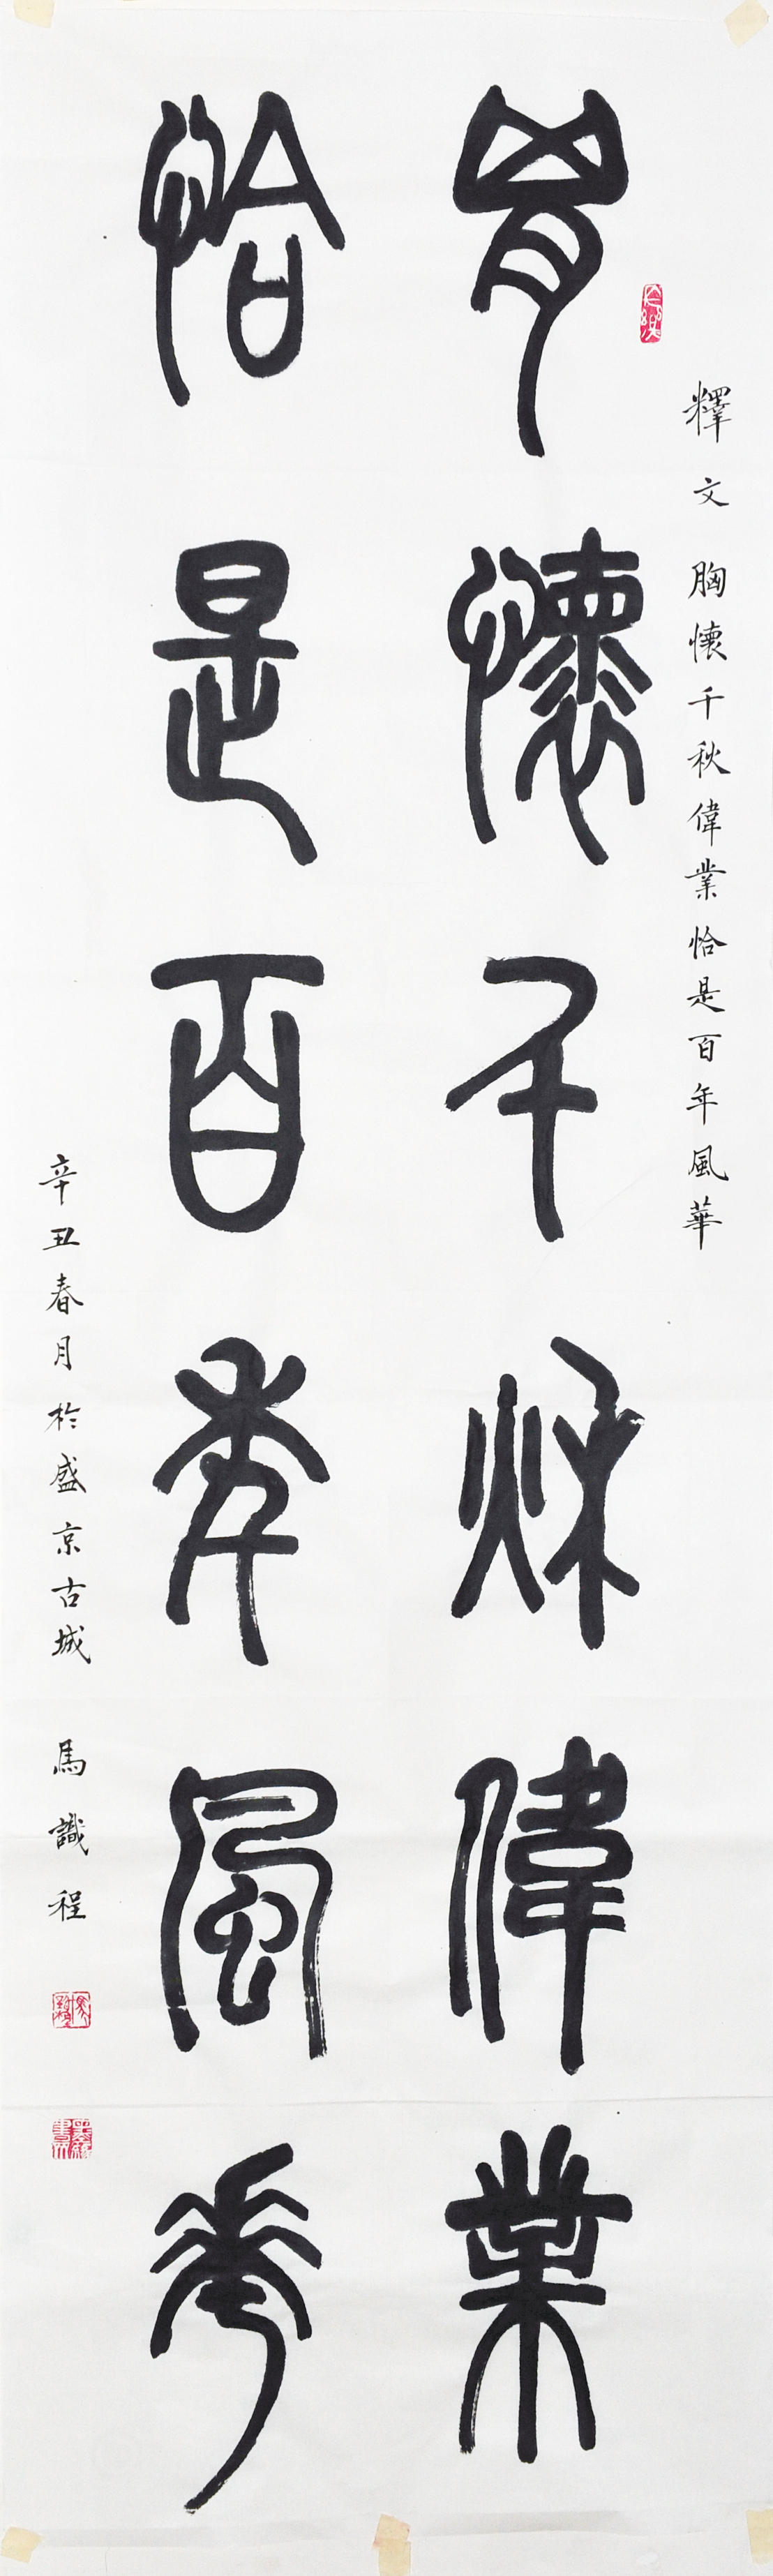 釋文 胸懷千秋偉業恰是百年風華
胷懷千秋偉業
恰是百年風華
辛丑春月於盛京古城 馬識程